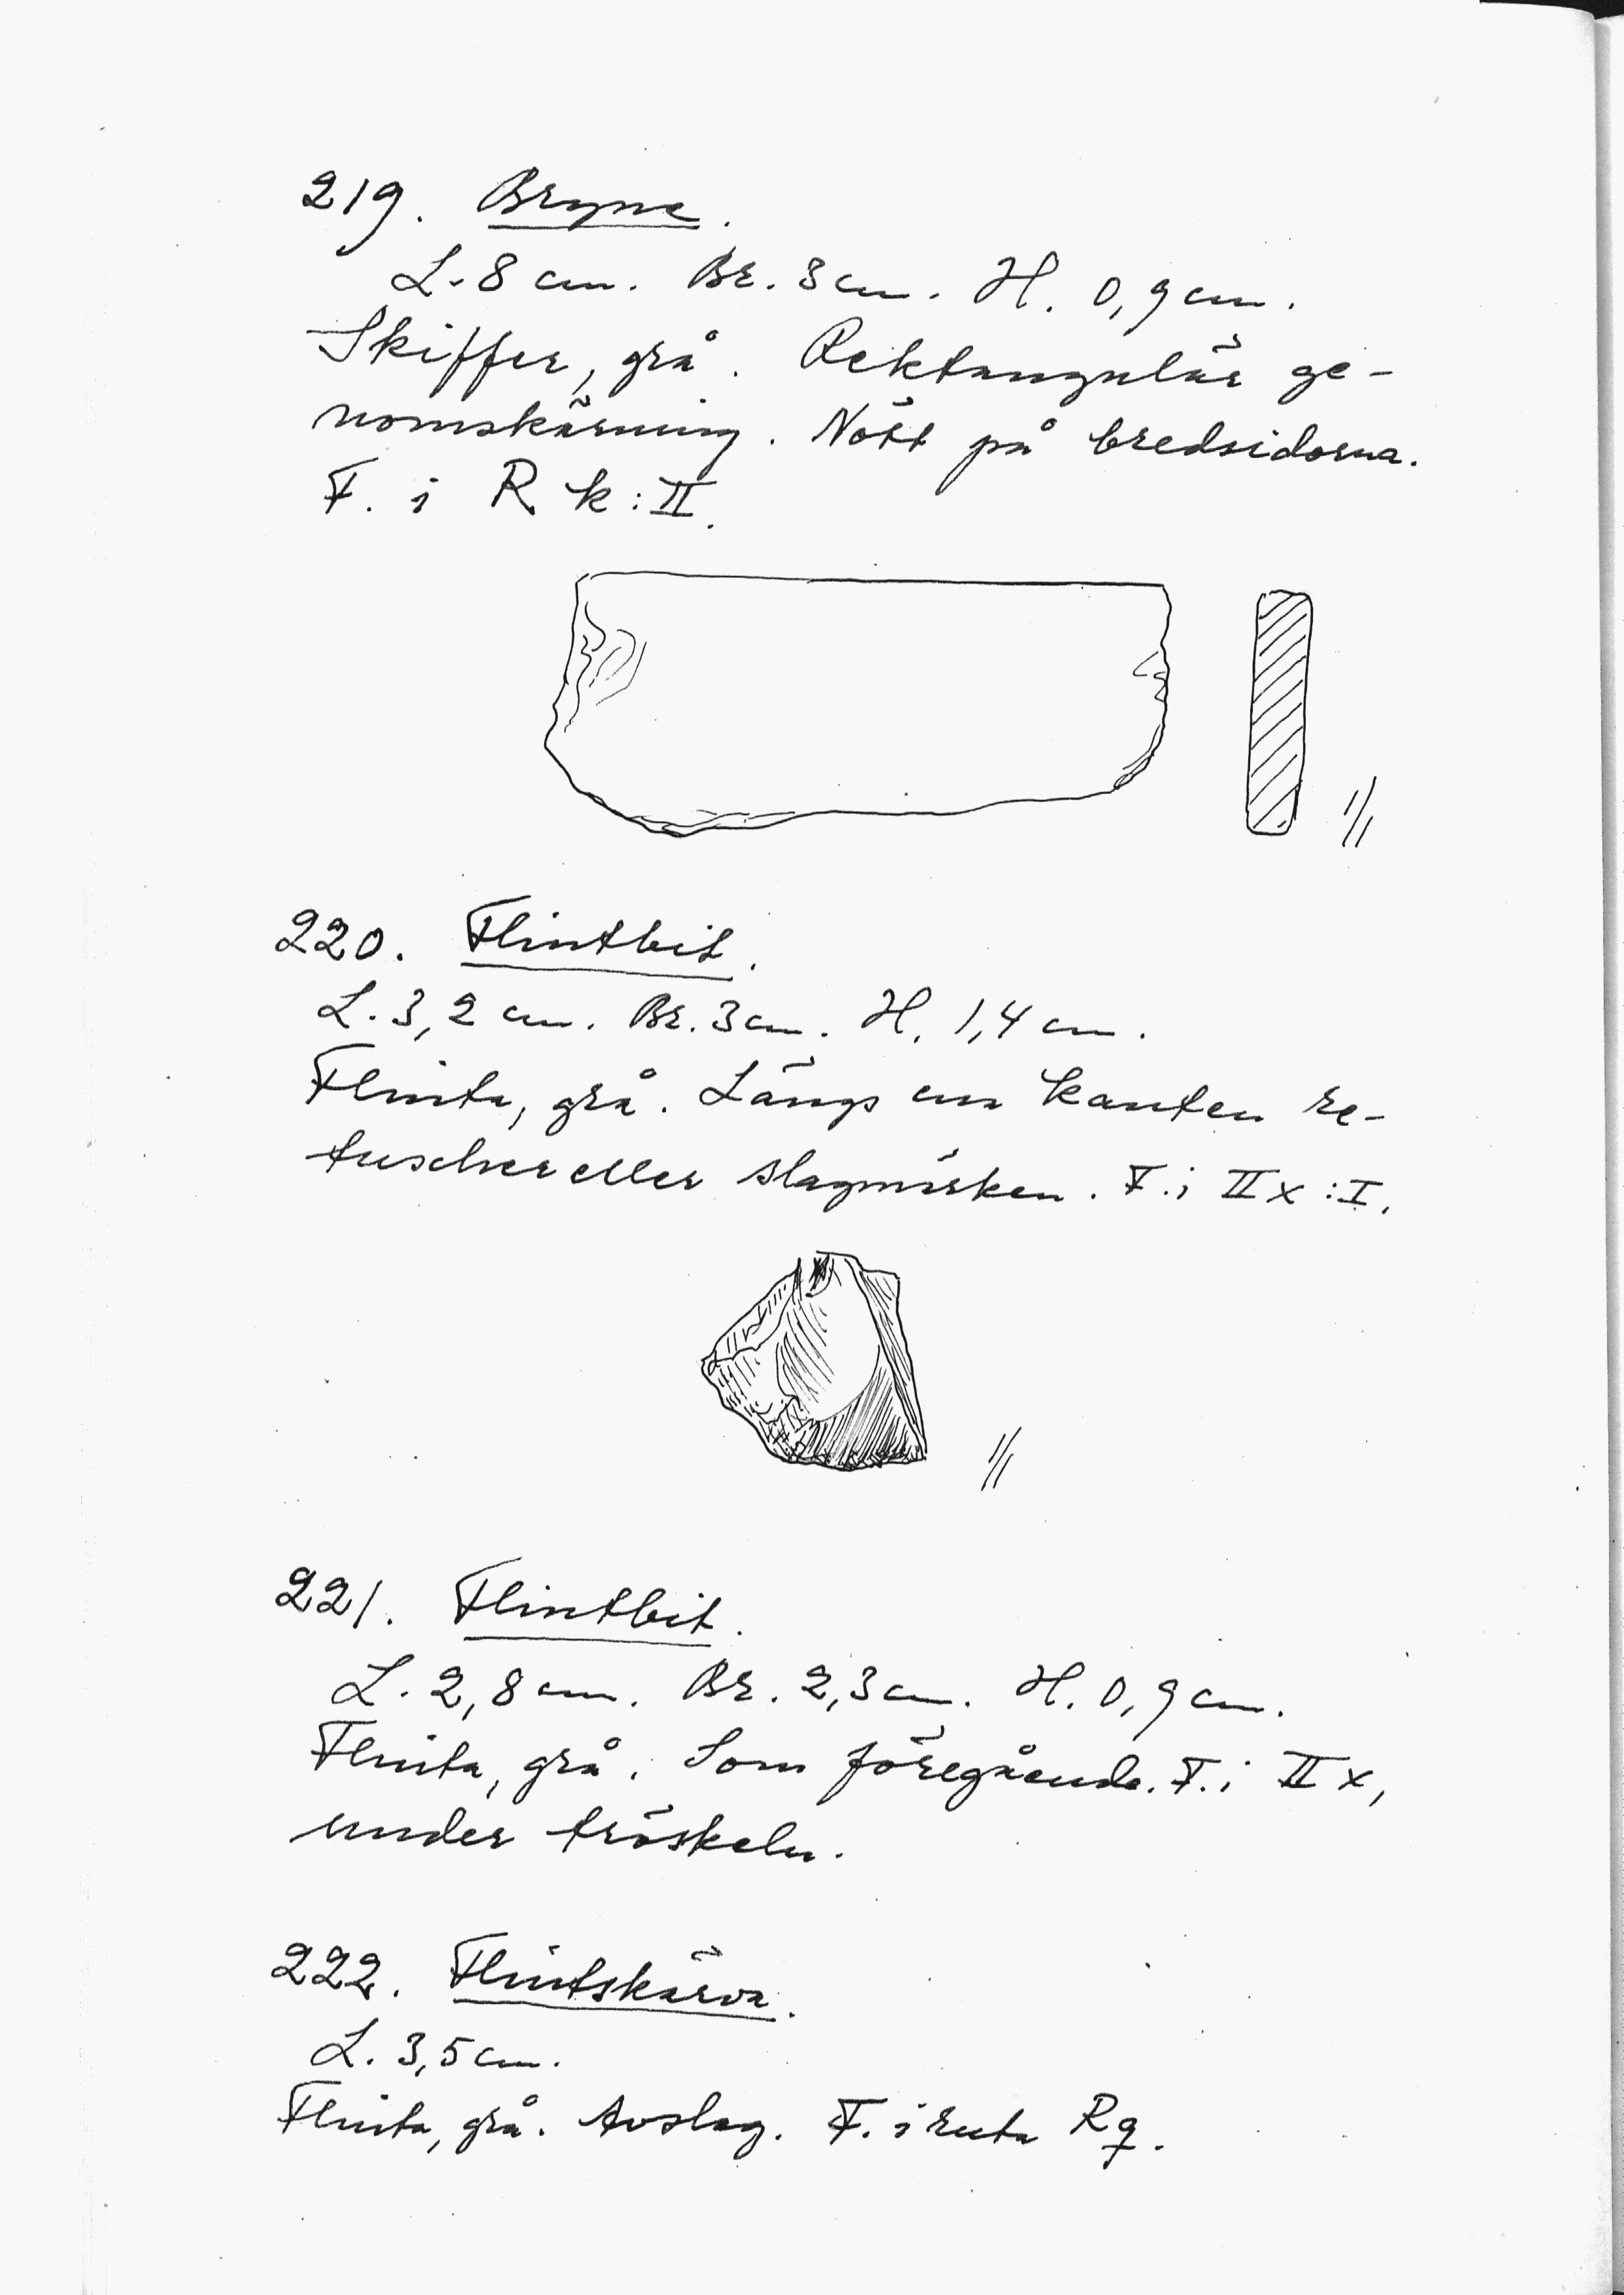 219. Bryne.
L. 8 cm. Br. 3 cm. H. 0,9 cm.
Skiffer, grå. Rektangulär ge-
nomskärning. Nött på bredsidorna.
F. i R k:II.
1/1
220. Flintbit.
L. 3,2 cm. Br. 3 cm. H. 1,4 cm.
Flinta, grå. Längs ena kanten re-
tuscher eller slagmärken. F. i II x:I.
1/1
221. Flintbit.
L. 2,8 cm. Br. 2,3 cm. H. 0,9 cm.
Flinta, grå. Som föregående. F. i II x,
under tröskeln.
222. Flintskärva.
L. 3,5 cm.
Flinta, grå. Avslag. F. i ruta Rq.